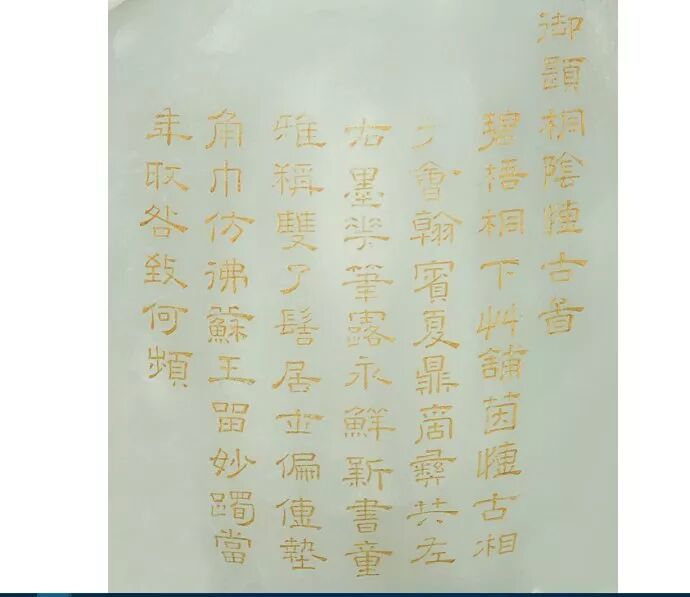 御題桐陰博古圖
碧梧桐下艸舖茵博古相
會翰賓夏鼎商彝共左
右墨華筆露永鮮新書童
雅稱雙丫髻居士偏傳墊
角巾仿彿蘇王留妙躅當
年取咎致何頻